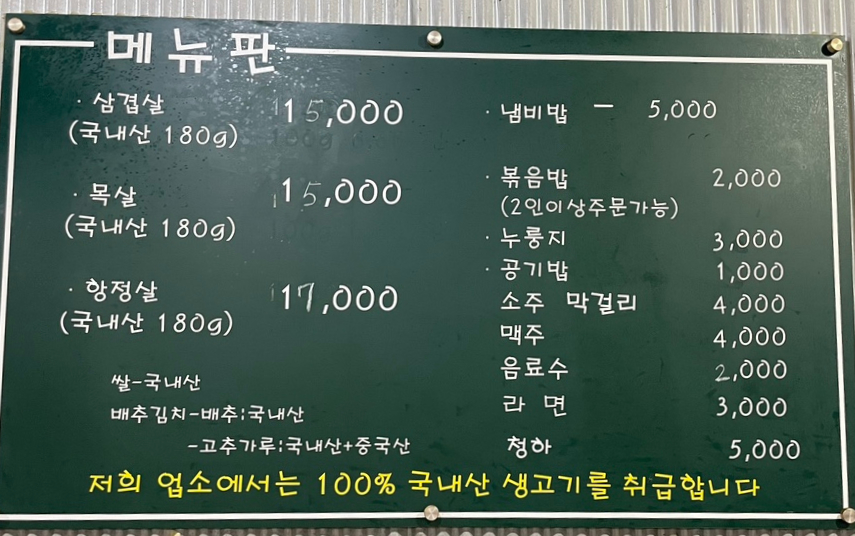 메뉴판
· 삼겹살 15,000
(국내산 180g)
· 목살 15,000
(국내산 180g)
· 항정살 17,000
(국내산 180g)
쌀-국내산
배추김치-배추:국내산
-고추가루:국내산+중국산
· 냄비밥 - 5,000
· 볶음밥 2,000
(2인이상주문가능)
· 누룽지 3,000
· 공기밥 1,000
소주 막걸리 4,000
맥주 4,000
음료수 2,000
라 면 3,000
청하 5,000
저희 업소에서는 100% 국내산 생고기를 취급합니다